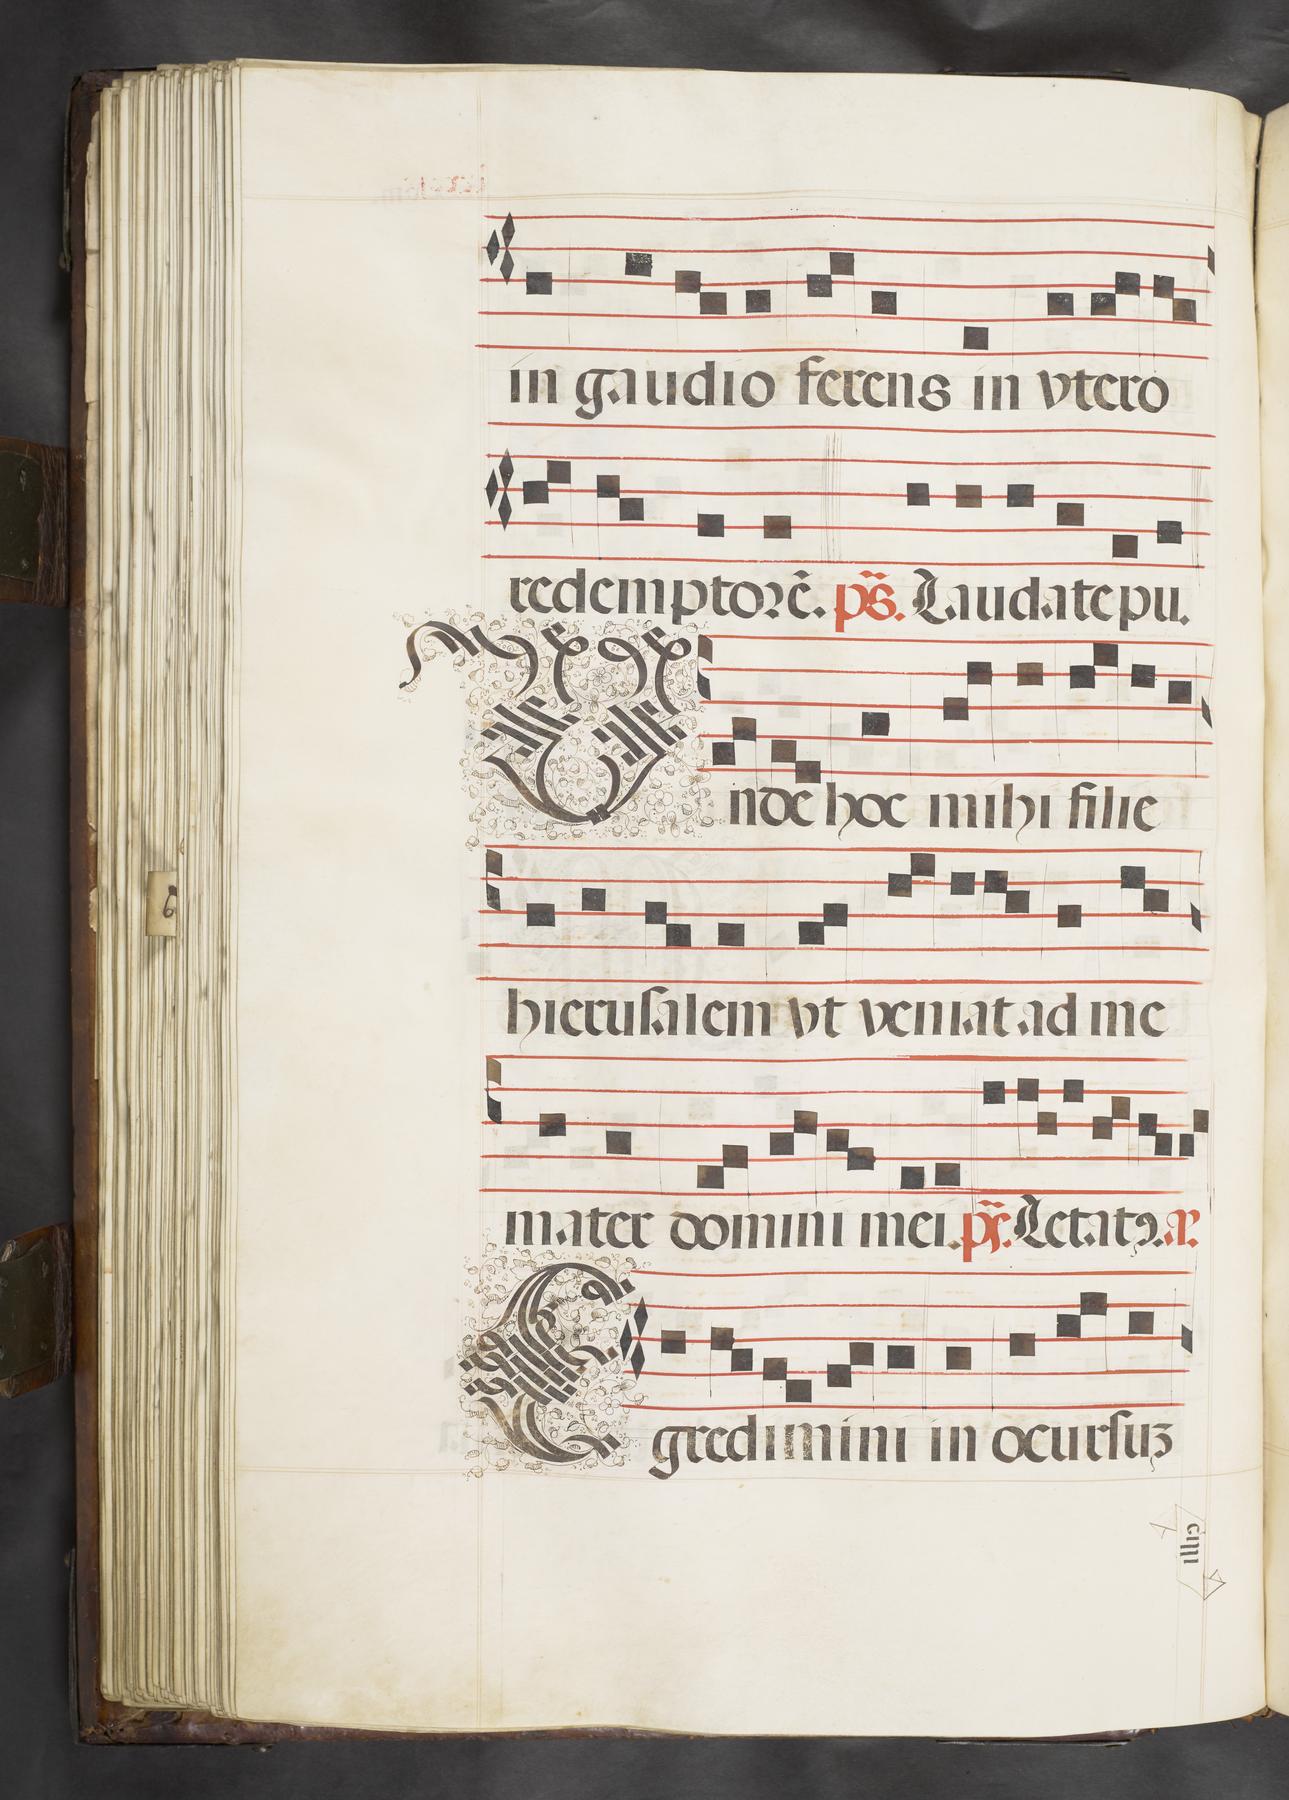 in gaudio ferens in vtero
redemptorē. ps̄. Laudate pu.
Unde hoc mihi filie
hierusalem vt veniat ad me
mater domini mei. ps̄. Letatꝰ. a.
Egredimini in ocursuʒ
cilli
6